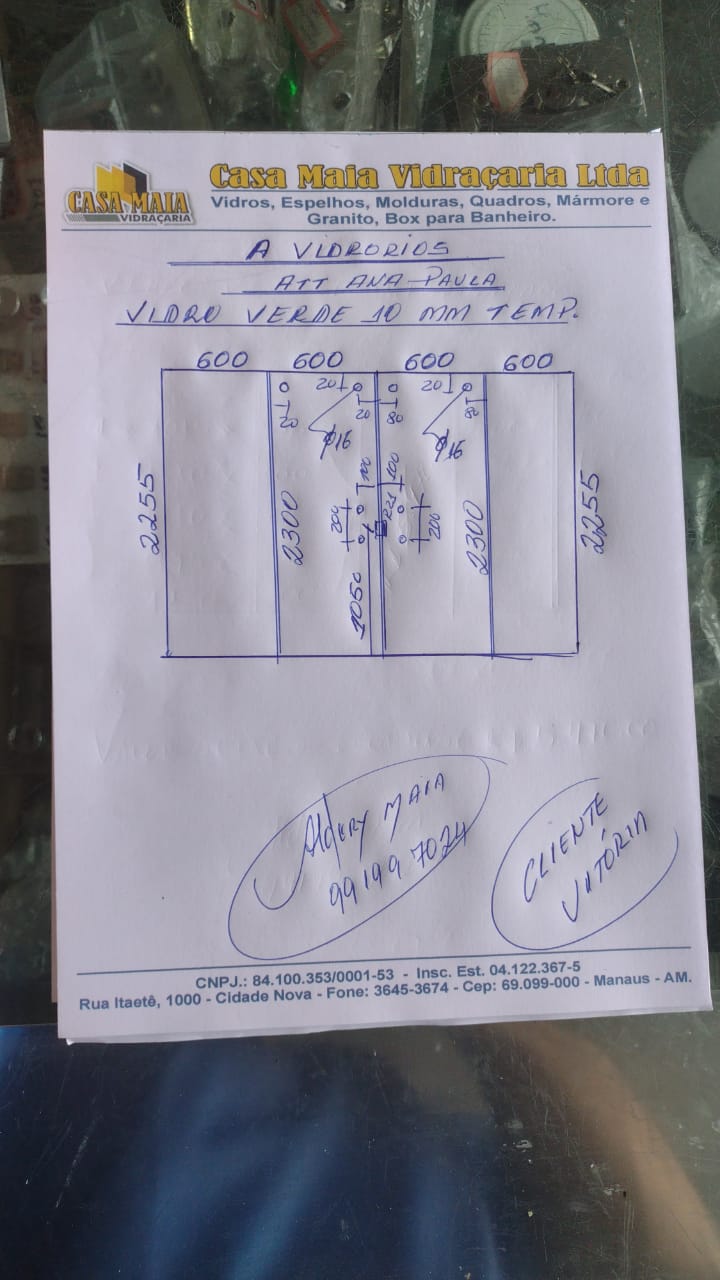 CASA MAIA
VIDRAÇARIA
Casa Maia Vidraçaria Ltda
Vidros, Espelhos, Molduras, Quadros, Mármore e
Granito, Box para Banheiro.
A VIDRORIOS
ATT ANA PAULA
VIDRO VERDE 10 MM TEMP.
600 600 600 600
20 20
20 20 80 80
φ16 φ16
100 100
2255 2300 200 R21 200 2300 2255
1050
Aldery MAIA
99199 7024
CLIENTE
VITÓRIA
CNPJ.: 84.100.353/0001-53 - Insc. Est. 04.122.367-5
Rua Itaetê, 1000 - Cidade Nova - Fone: 3645-3674 - Cep: 69.099-000 - Manaus - AM.